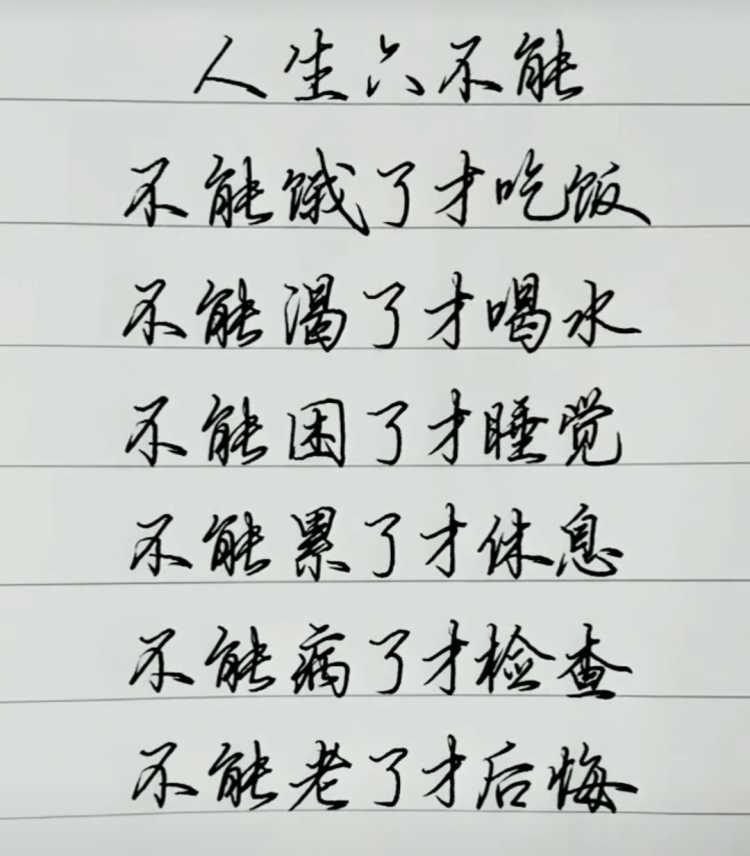 人生六不能
不能饿了才吃饭
不能渴了才喝水
不能困了才睡觉
不能累了才休息
不能病了才检查
不能老了才后悔